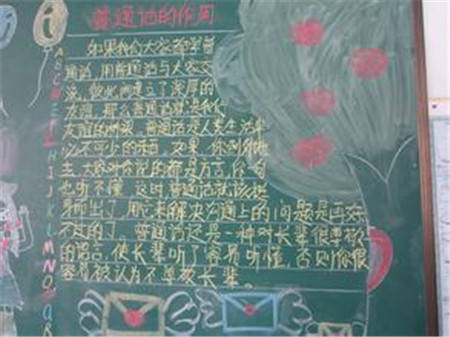 普通话的作用
如果我们大家都学普
通话，用普通话与大家交
流，彼此建立了深厚的
友谊，那么普通话就是我们
友谊的桥梁。普通话是人类生活中
必不可少的东西，如果，你到外地
去，大家对你说的都是方言，你一句
也听不懂，这时，普通话就该挺
身而出了，用它来解决沟通上的问题是再好
不过的了。普通话还是一种对长辈很尊敬
的语言，使长辈听了容易听懂，否则你很
容易被认为不尊敬长辈。
A
B
C
H
I
J
K
L
M
N
O